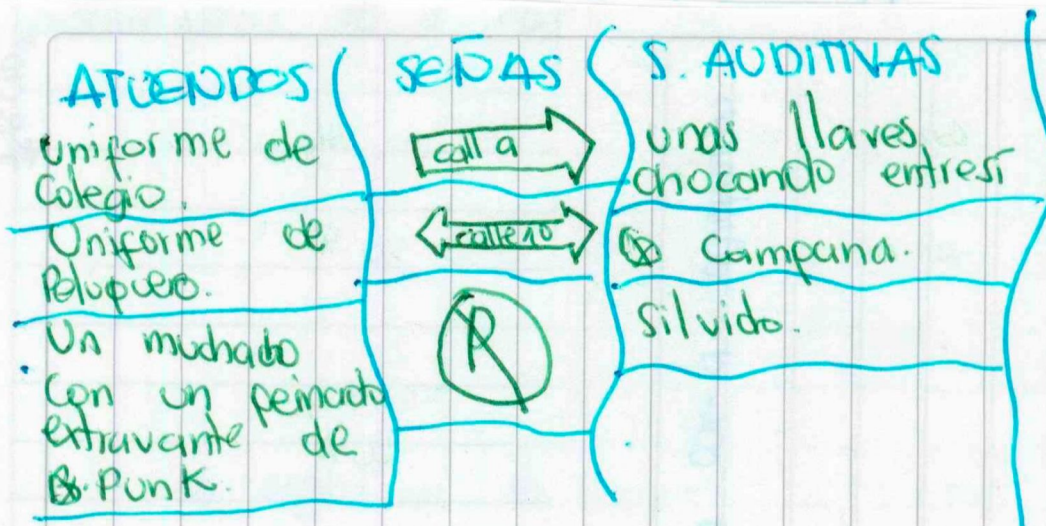 ATUENDOS SEÑAS S. AUDITIVAS
uniforme de
Colegio.
call a
unas llaves
chocando entresí
Uniforme de
Peluquero.
calle 10
Campana.
Un muchacho
Con un peinado
extravante de
Punk.
R
Silvido.